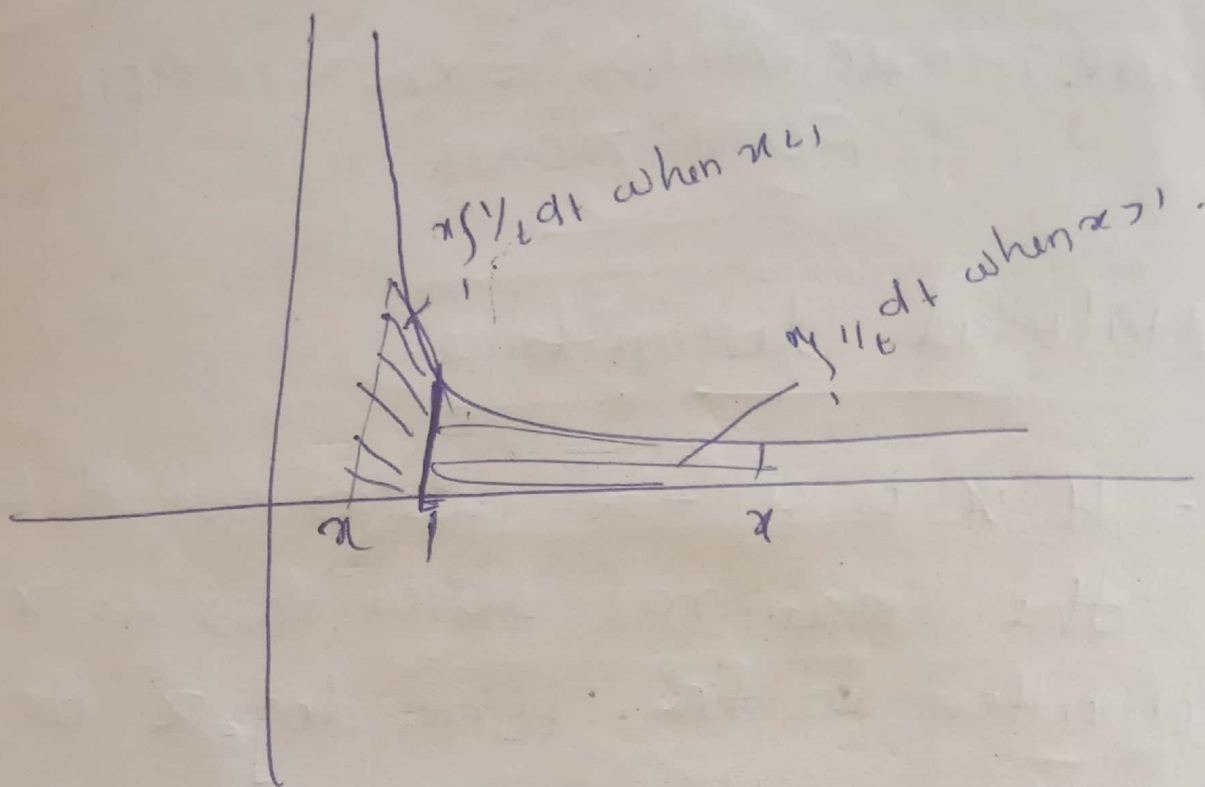 x∫1 1/t dt when x<1
x∫1 1/t dt when x>1.
x 1 x